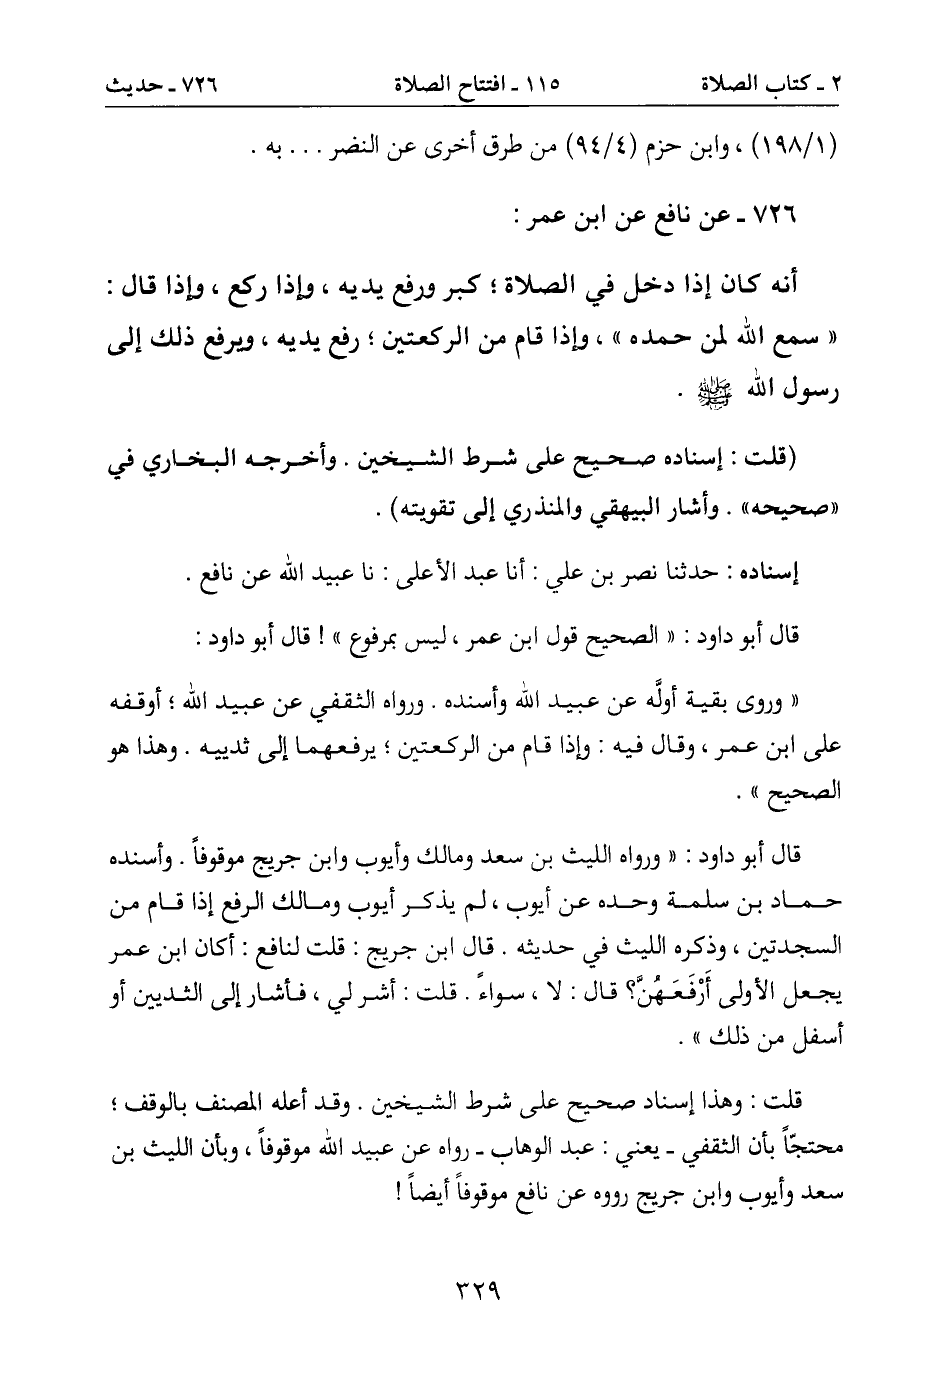 ٢ ـ كتاب الصلاة ١١٥ ـ افتتاح الصلاة ٧٢٦ ـ حديث
(١/١٩٨) ، وابن حزم (٤/٩٤) من طرق أخرى عن النضر . . . به .
٧٢٦ ـ عن نافع عن ابن عمر :
أنه كان إذا دخل في الصلاة ؛ كبر ورفع يديه ، وإذا ركع ، وإذا قال :
« سمع الله لمن حمده » ، وإذا قام من الركعتين ؛ رفع يديه ، ويرفع ذلك إلى
رسول الله ﷺ .
(قلت : إسناده صحيح على شرط الشيخين . وأخرجه البخاري في
«صحيحه» . وأشار البيهقي والمنذري إلى تقويته) .
إسناده : حدثنا نصر بن علي : أنا عبد الأعلى : نا عبيد الله عن نافع .
قال أبو داود : « الصحيح قول ابن عمر ، ليس بمرفوع » ! قال أبو داود :
« وروى بقية أولَّه عن عبيد الله وأسنده . ورواه الثقفي عن عبيد الله ؛ أوقفه
على ابن عمر ، وقال فيه : وإذا قام من الركعتين ؛ يرفعهما إلى ثدييه . وهذا هو
الصحيح » .
قال أبو داود : « ورواه الليث بن سعد ومالك وأيوب وابن جريج موقوفاً . وأسنده
حماد بن سلمة وحده عن أيوب ، لم يذكر أيوب ومالك الرفع إذا قام من
السجدتين ، وذكره الليث في حديثه . قال ابن جريج : قلت لنافع : أكان ابن عمر
يجعل الأولى أَرْفَعَهُنَّ؟ قال : لا ، سواءً . قلت : أشر لي ، فأشار إلى الثديين أو
أسفل من ذلك » .
قلت : وهذا إسناد صحيح على شرط الشيخين . وقد أعله المصنف بالوقف ؛
محتجّاً بأن الثقفي ـ يعني : عبد الوهاب ـ رواه عن عبيد الله موقوفاً ، وبأن الليث بن
سعد وأيوب وابن جريج رووه عن نافع موقوفاً أيضاً !
٣٢٩